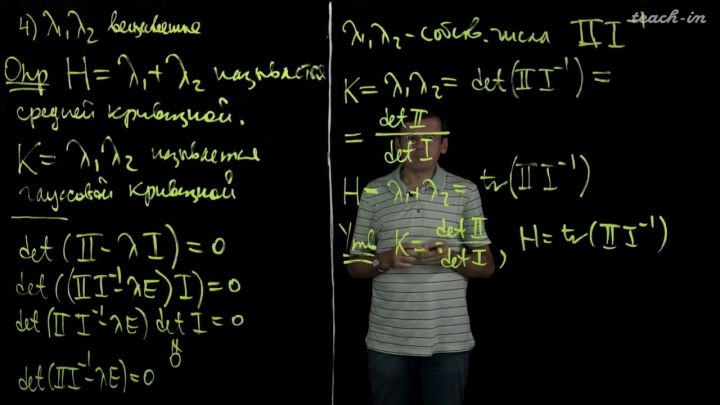 4) λ₁, λ₂ вещественные
Опр H = λ₁ + λ₂ называется
средней кривизной.
K = λ₁ λ₂ называется
гауссовой кривизной
det (II − λ I) = 0
det ((II I⁻¹ − λE) I) = 0
det (II I⁻¹ − λE) det I = 0
≠
0
det (II I⁻¹ − λE) = 0
teach-in
λ₁, λ₂ – собств. числа II I⁻¹
K = λ₁ λ₂ = det (II I⁻¹) =
= det II / det I
H = λ₁ + λ₂ = tr (II I⁻¹)
Утв K = det II / det I, H = tr (II I⁻¹)